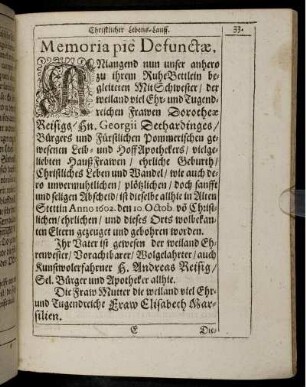 Christlicher Lebens-Lauff.
33.
Memoria piè Defunctæ.
ANlangend nun unser anhero
zu ihrem RuheBettlein be-
gleiteten MitSchwester / der
weiland viel Ehr- und Tugend-
reichen Frawen Dorotheæ
Reifigs / Hn. Georgii Dethardinges /
Bürgers und Fürstlichen Pommerischen ge-
wesenen Leib- und HoffApothekers / vielge-
liebten HaußFrawen / ehrliche Geburth /
Christliches Leben und Wandel / wie auch de-
ro unvermuhtlichen / plötzlichen / doch sanffte
und seligen Abscheid / ist dieselbe allhie in Alten
Stettin Anno 1602. den 10 Octob. võ Christli-
lichen / ehrlichen / und dieses Orts wolbekan-
ten Eltern gezeuget und gebohren worden.
Ihr Vater ist gewesen der weiland Eh-
renvester / Vorachtbarer / Wolgelahrter / auch
Kunstwolerfahrner H. Andreas Reifig /
Sel. Bürger und Apotheker allhie.
Die Fraw Mutter die weiland viel Ehr-
und Tugendreiche Fraw Elisabeth Mar-
silien.
E
Die-